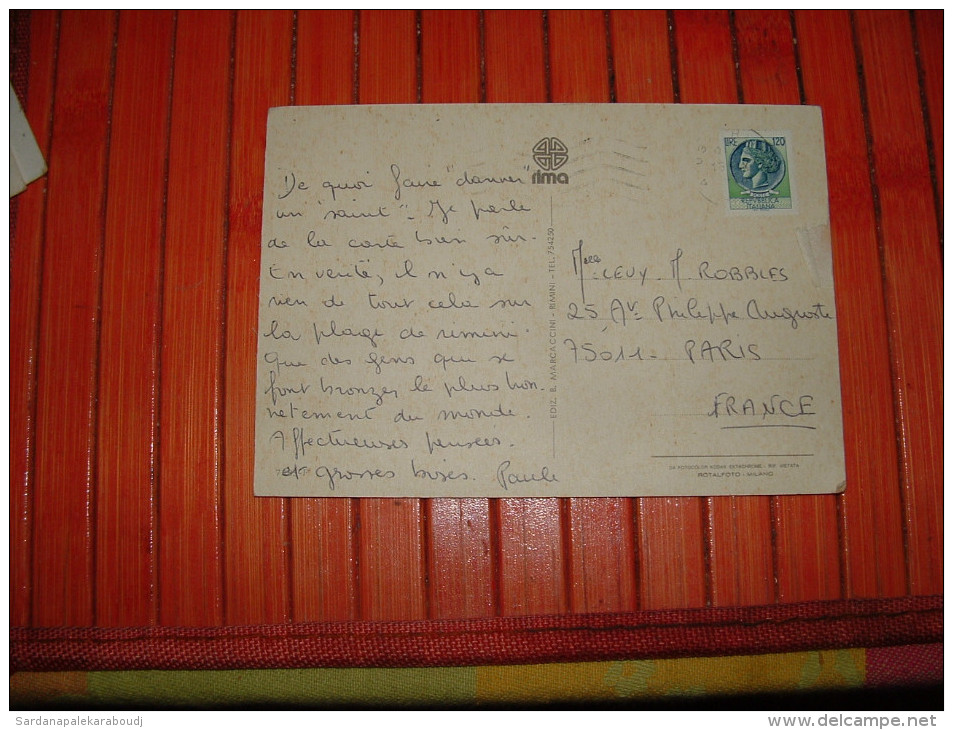 De quoi faire "damner"
un "saint". Je parle
de la carte bien sûr.
En verité, il n'y a
rien de tout cela sur
la plage de rimini.
Que des gens qui se
font bronzer le plus hon-
nêtement du monde.
Affectueuses pensées.
et grosses bises. Paule
rima
EDIZ. E. MARCACCINI - RIMINI - TEL. 754250
LIRE 120
REPUBBLICA
ITALIANA
LEVY. M ROBBLES
25, Av. Philippe Auguste
75011 - PARIS
FRANCE
DA FOTOCOLOR KODAK EKTACHROME - RIP. VIETATA
ROTALFOTO - MILANO
Sardanapalekaraboudj
www.delcampe.net